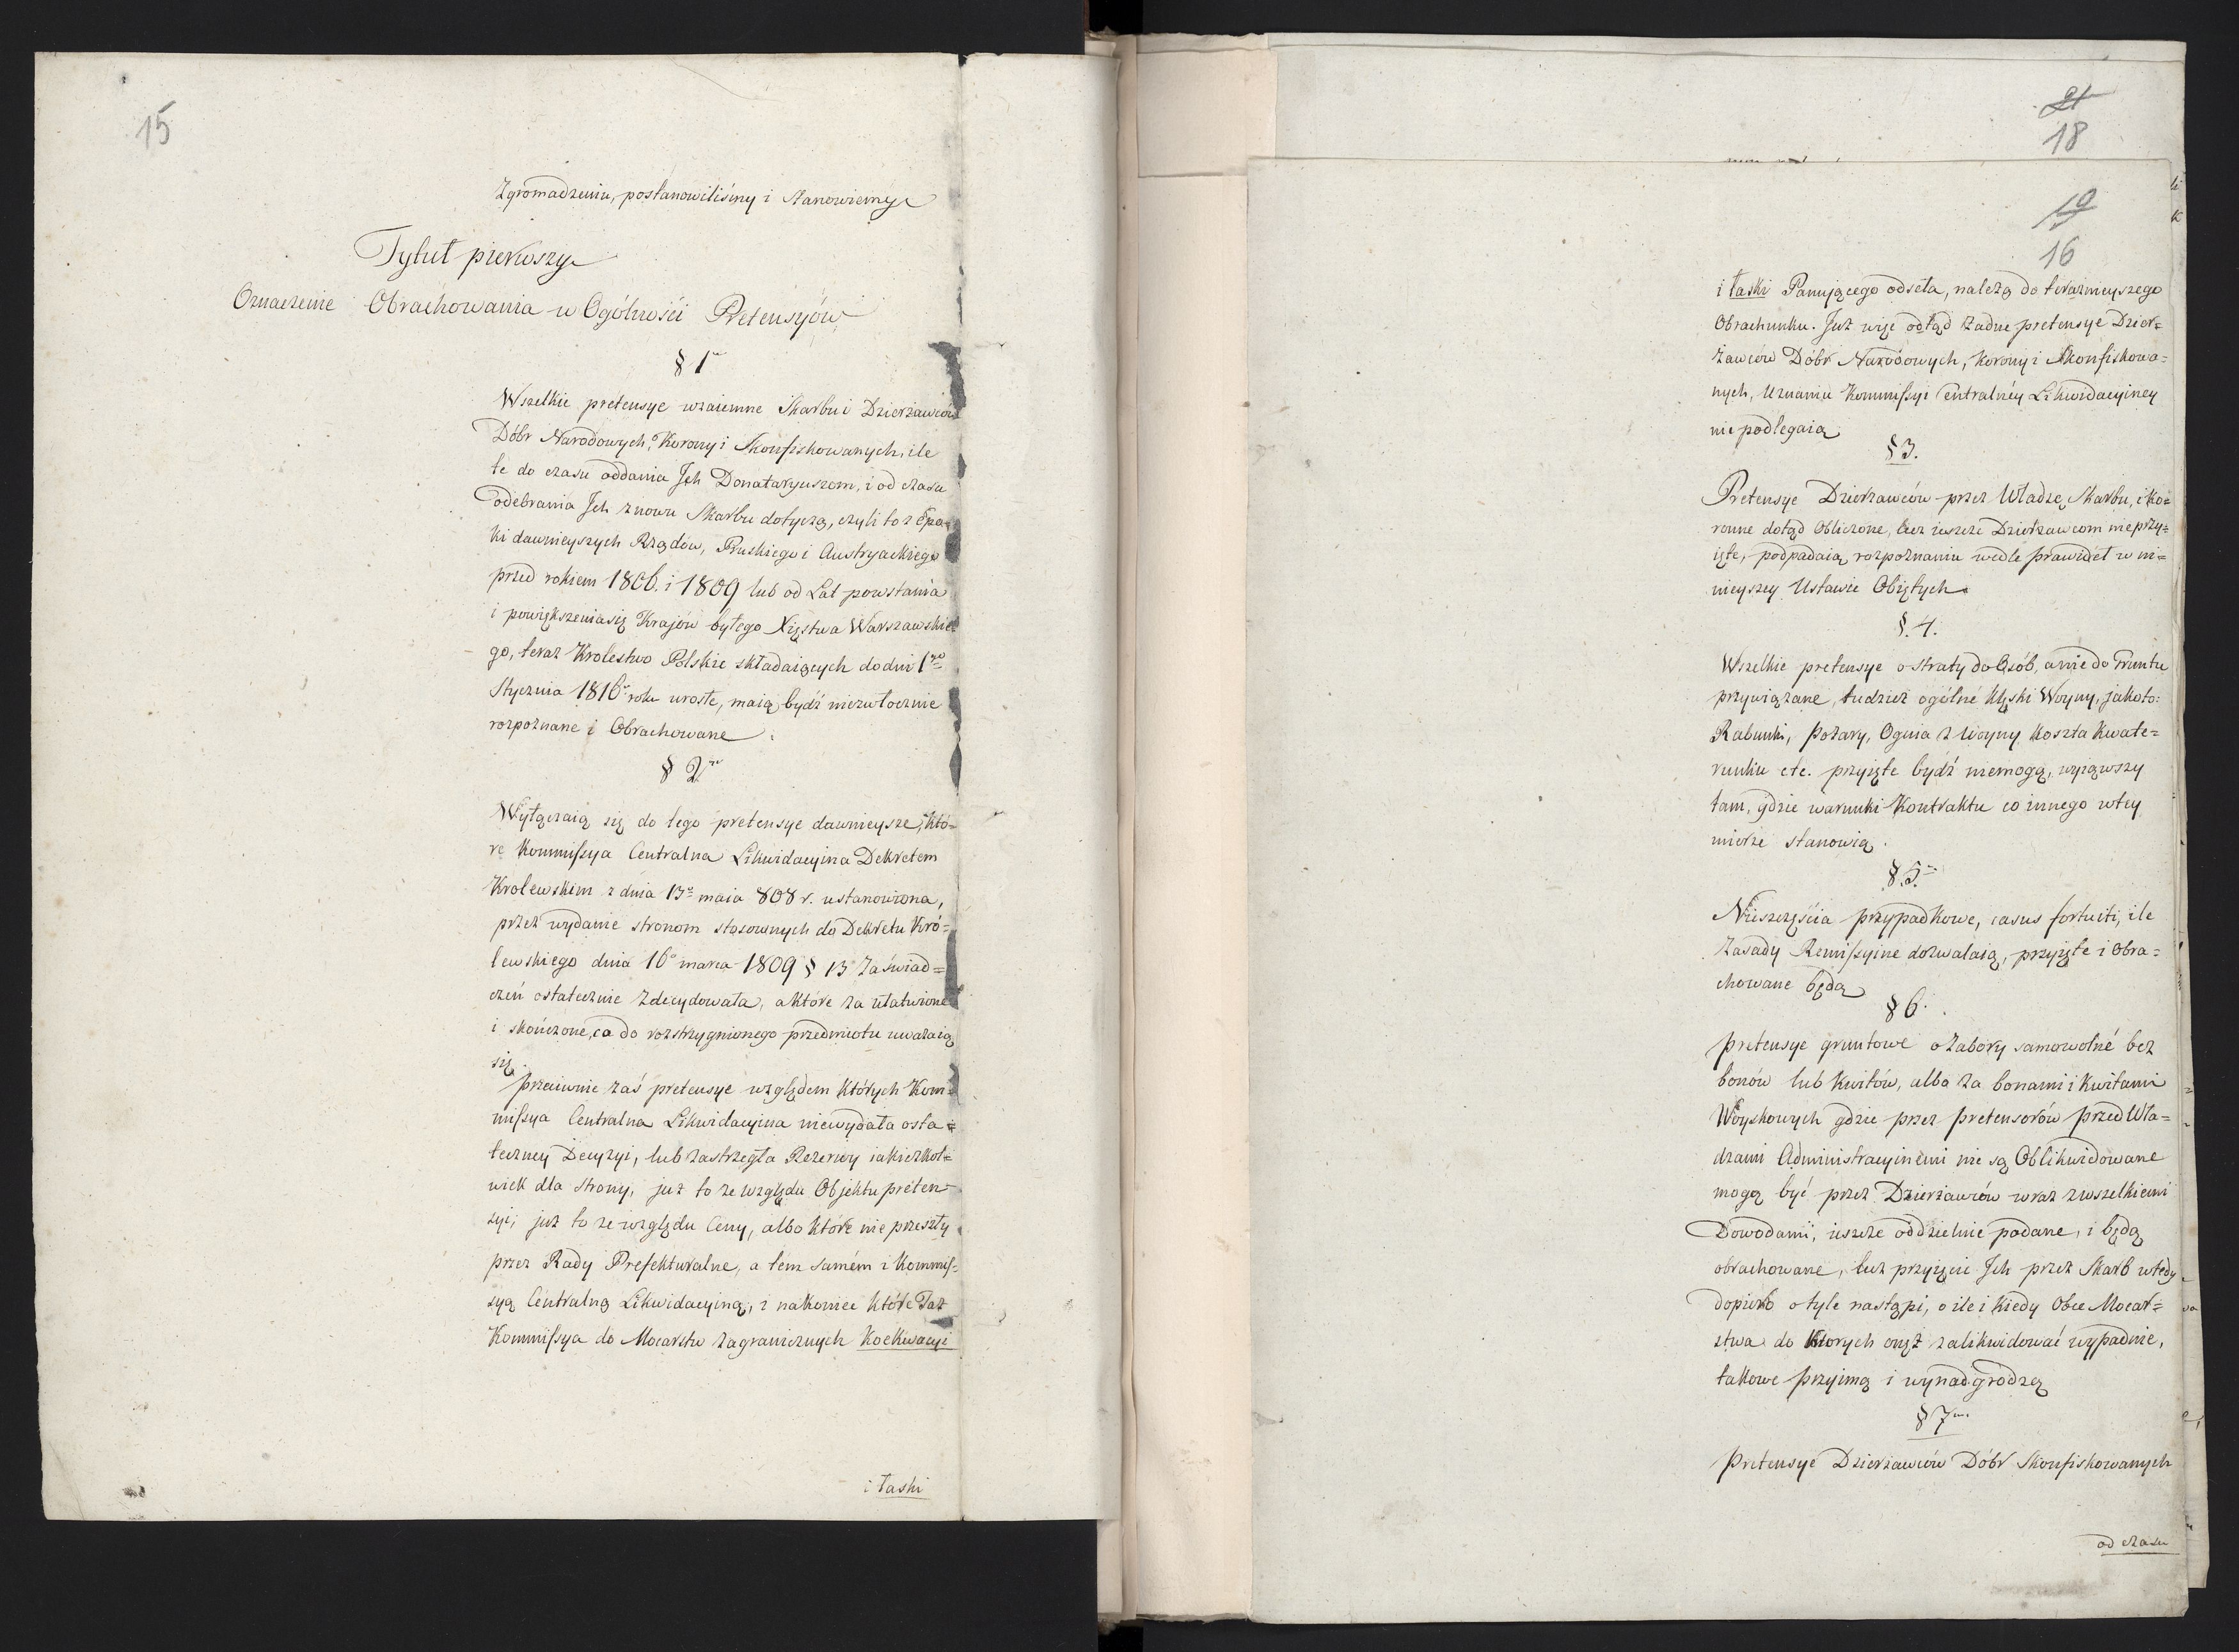 15
Zgromadzeniu, postanowiliśmy i stanowiemy
Tytuł pierwszy
Oznaczenie Obrachowania w Ogólności Pretensyów
§ 1
Wszelkie pretensye wzaiemne Skarbu i Dzierżawców
Dóbr Narodowych, Korony i Skonfiskowanych, ile
te do czasu oddania Ich Donataryuszom, i od czasu
odebrania Ich znowu Skarbu dotyczą, czyli to z Epo=
ki dawnieyszych Rządów, Pruskiego i Austryackiego
przed rokiem 1806. i 1809 lub od Lat powstania
i powiększenia się Krajów byłego Xięstwa Warszawskie
go, teraz Krolestwo Polskie składaiących do dni 1go
Stycznia 1816 roku urosłe, maią bydź niezwłocznie
rozpoznane i Obrachowane
§ 2
Wyłączaią się do tego pretensye dawnieysze, któ=
re Kommissya Centralna Likwidacyina Dekretem
Krolewskim z dnia 13o maia 808 r. ustanowiona,
przez wydanie stronom stosownych do Dekretu Kró=
lewskiego dnia 16o marca 1809 § 13 Zaświad=
czeń ostatecznie zdecydowała, a które za ułatwione
i skończone, co do rozstrzygnionego przedmiotu uważaią
się.
przeciwnie zaś pretensye względem których Kom=
missya Centralna Likwidacyina niewydała osta=
teczney Decyzyi, lub zastrzegła Rezerwy iakieżkol=
wiek dla strony, już to ze względu Objektu preten=
syi, już to ze względu Ceny, albo które nie przeszły
przez Rady Prefekturalne, a tem samém i Kommis=
syą Centralną Likwidacyiną, i nakoniec które Taż
Kommissya do Mocarstw zagranicznych Koekwacyi
i łaski
21
18
19
16
i łaski Panującego odseła, należą do teraznieyszego
Obrachunku. Już więc odtąd żadne pretensye Dzier=
żawców Dóbr Narodowych, Korony i Skonfiskowa=
nych, Uznaniu Kommissyi Centralnéy Likwidacyiney
nie podlegaią
§ 3.
Pretensye Dzierżawców przez Władze, Skarbu, i Ko=
ronne dotąd Obliczone, lecz ieszcze Dzierżawcom nieprzy=
ięte, podpadaią rozpoznaniu wedle prawideł w ni=
nieyszey Ustawie Obiętych.
§. 4.
Wszelkie pretensye o straty do Osób, a nie do Gruntu
przywiązane, tudzież ogólne Klęski Woyny, jakoto:
Rabunki, Pożary, Ognia z Woyny, Koszta Kwate=
runku etc. przyięte bydź niemogą, wyiąwszy
tam, gdzie warunki Kontraktu co innego wtey
mierze stanowią.
§ 5.
Nieszczęścia przypadkowe, casus fortuiti, ile
zasady Remissyine dozwalaią, przyięte i Obra=
chowane będą
§ 6.
pretensye gruntowe o zabory samowolné bez
bonów lub kwitów, albo za bonami i kwitami
Woyskowych gdzie przez pretensorów przed Wła=
dzami Administracyinemi nie są Oblikwidowane
mogą być przez Dzierżawców wraz z wszelkiemi
Dowodami, ieszcze oddzielnie podane, i będą
obrachowane, lecz przyięcie Ich przez Skarb wtedy
dopiero o tyle nastąpi, o ile i kiedy Obce Mocar=
stwa do których onęż zalikwidować wypadnie,
takowe przyimą i wynadgrodzą
§ 7
Pretensye Dzierżawców Dóbr Skonfiskowanych
od czasu